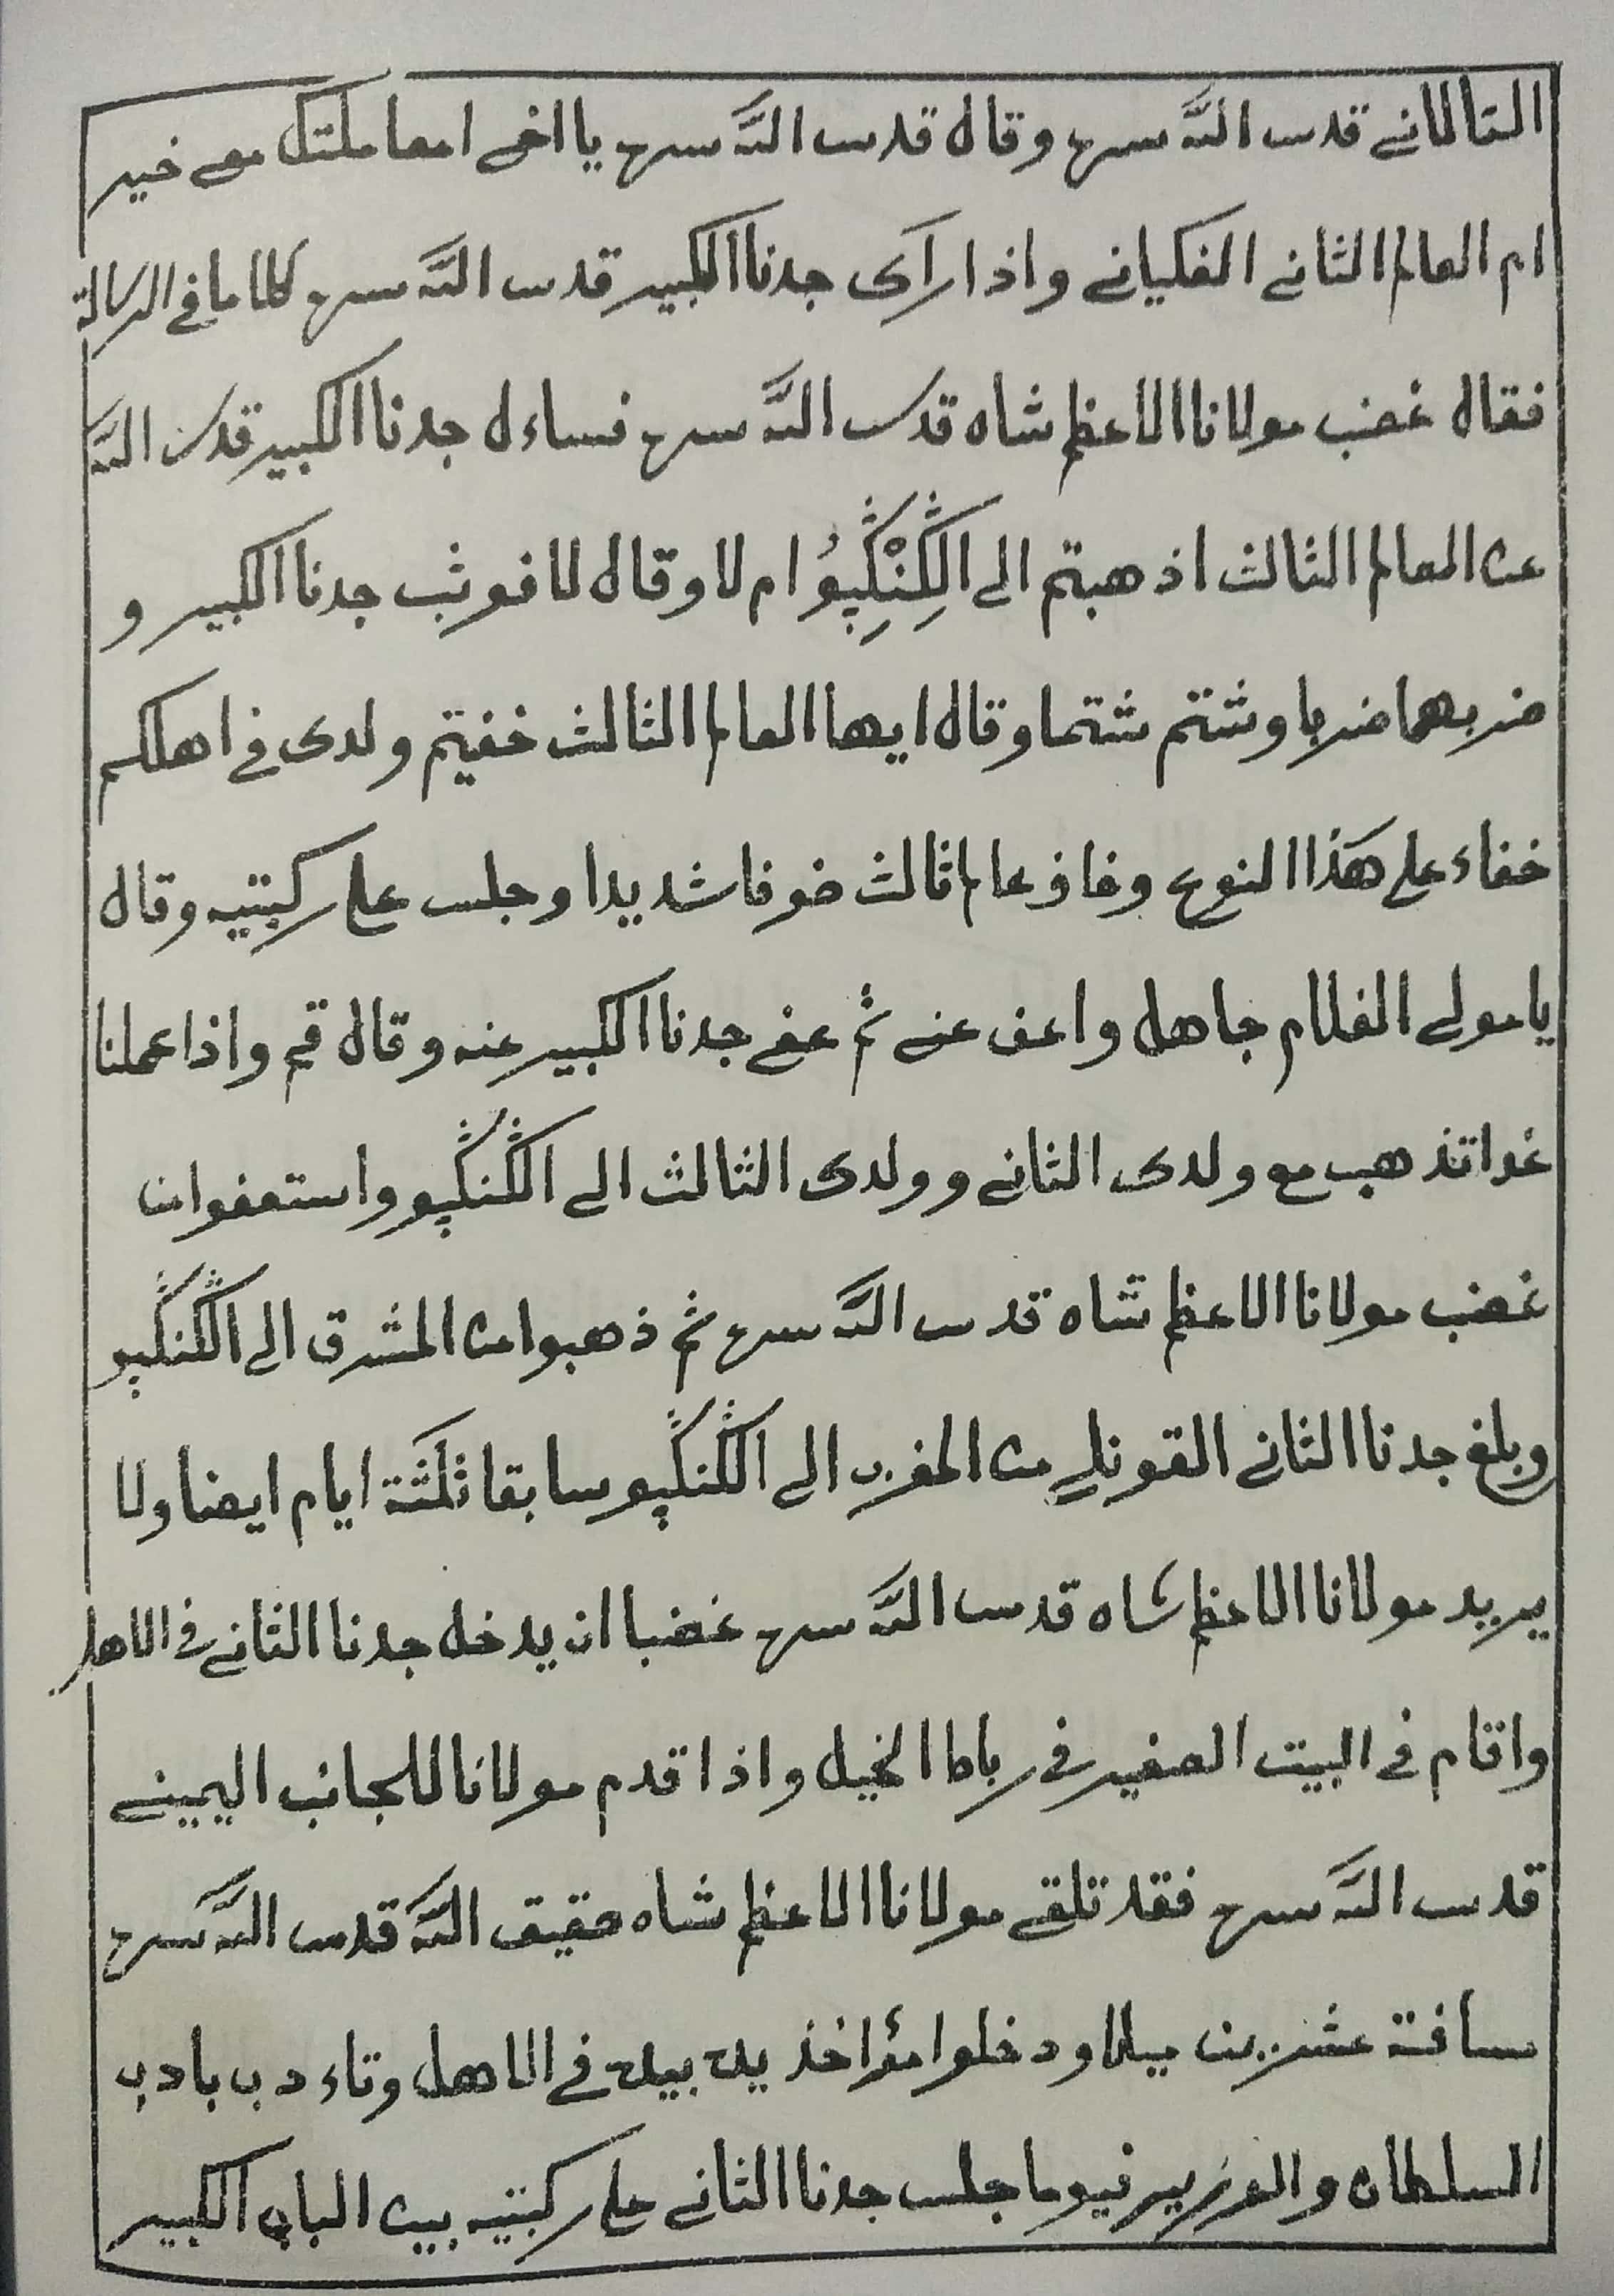 التالانے قدس اللّٰه سره وقال قدس اللّٰه سره يا اخے امعاملتك معے خير
ام العالم الثانے الفكيانے واذا رآى جدنا الكبير قدس اللّٰه سره كلاما فے الرسالة
فقال غضب مولانا الاعظم شاه قدس اللّٰه سره فساءل جدنا الكبير قدس اللّٰه
عن العالم الثالث اذهبتم الى الڭِنْڭِپُو ام لا وقال لا فوثب جدنا الكبير و
ضربهما ضربا وشتم شتما وقال ايها العالم الثالث خفيتم ولدى فے اهلكم
خفاء علے هذا النوع وخاف عالم ثالث خوفا شديدا وجلس علے ركبتيه وقال
يا مولے الغلام جاهل واعف عنے ثم عفے جدنا الكبير عنه وقال قم واذا عملنا
غدا تذهب مع ولدى الثانے وولدى الثالث الے الڭنڭپو واستعفوا من
غضب مولانا الاعظم شاه قدس اللّٰه سره ثم ذهبوا من المشرق الى الڭنڭپو
وبلغ جدنا الثانے القونلے من المغرب الے الڭنڭپو سابقا ثلثة ايام ايضا ولا
يريد مولانا الاعظم شاه قدس اللّٰه سره غضبا ان يدخل جدنا الثانے فے الاهل
واقام فے البيت الصغير فے رباط الخيل واذا قدم مولانا للجانب اليمينے
قدس اللّٰه سره فقد تلقے مولانا الاعظم شاه حقيق اللّٰه قدس اللّٰه سره
مسافة عشرين ميلا ودخلوا مؤاخذ يد بيد فے الاهل وتاءدب بادب
السلطان والوزير فيوما جلس جدنا الثانے علے ركبتيه بين الباب الكبير